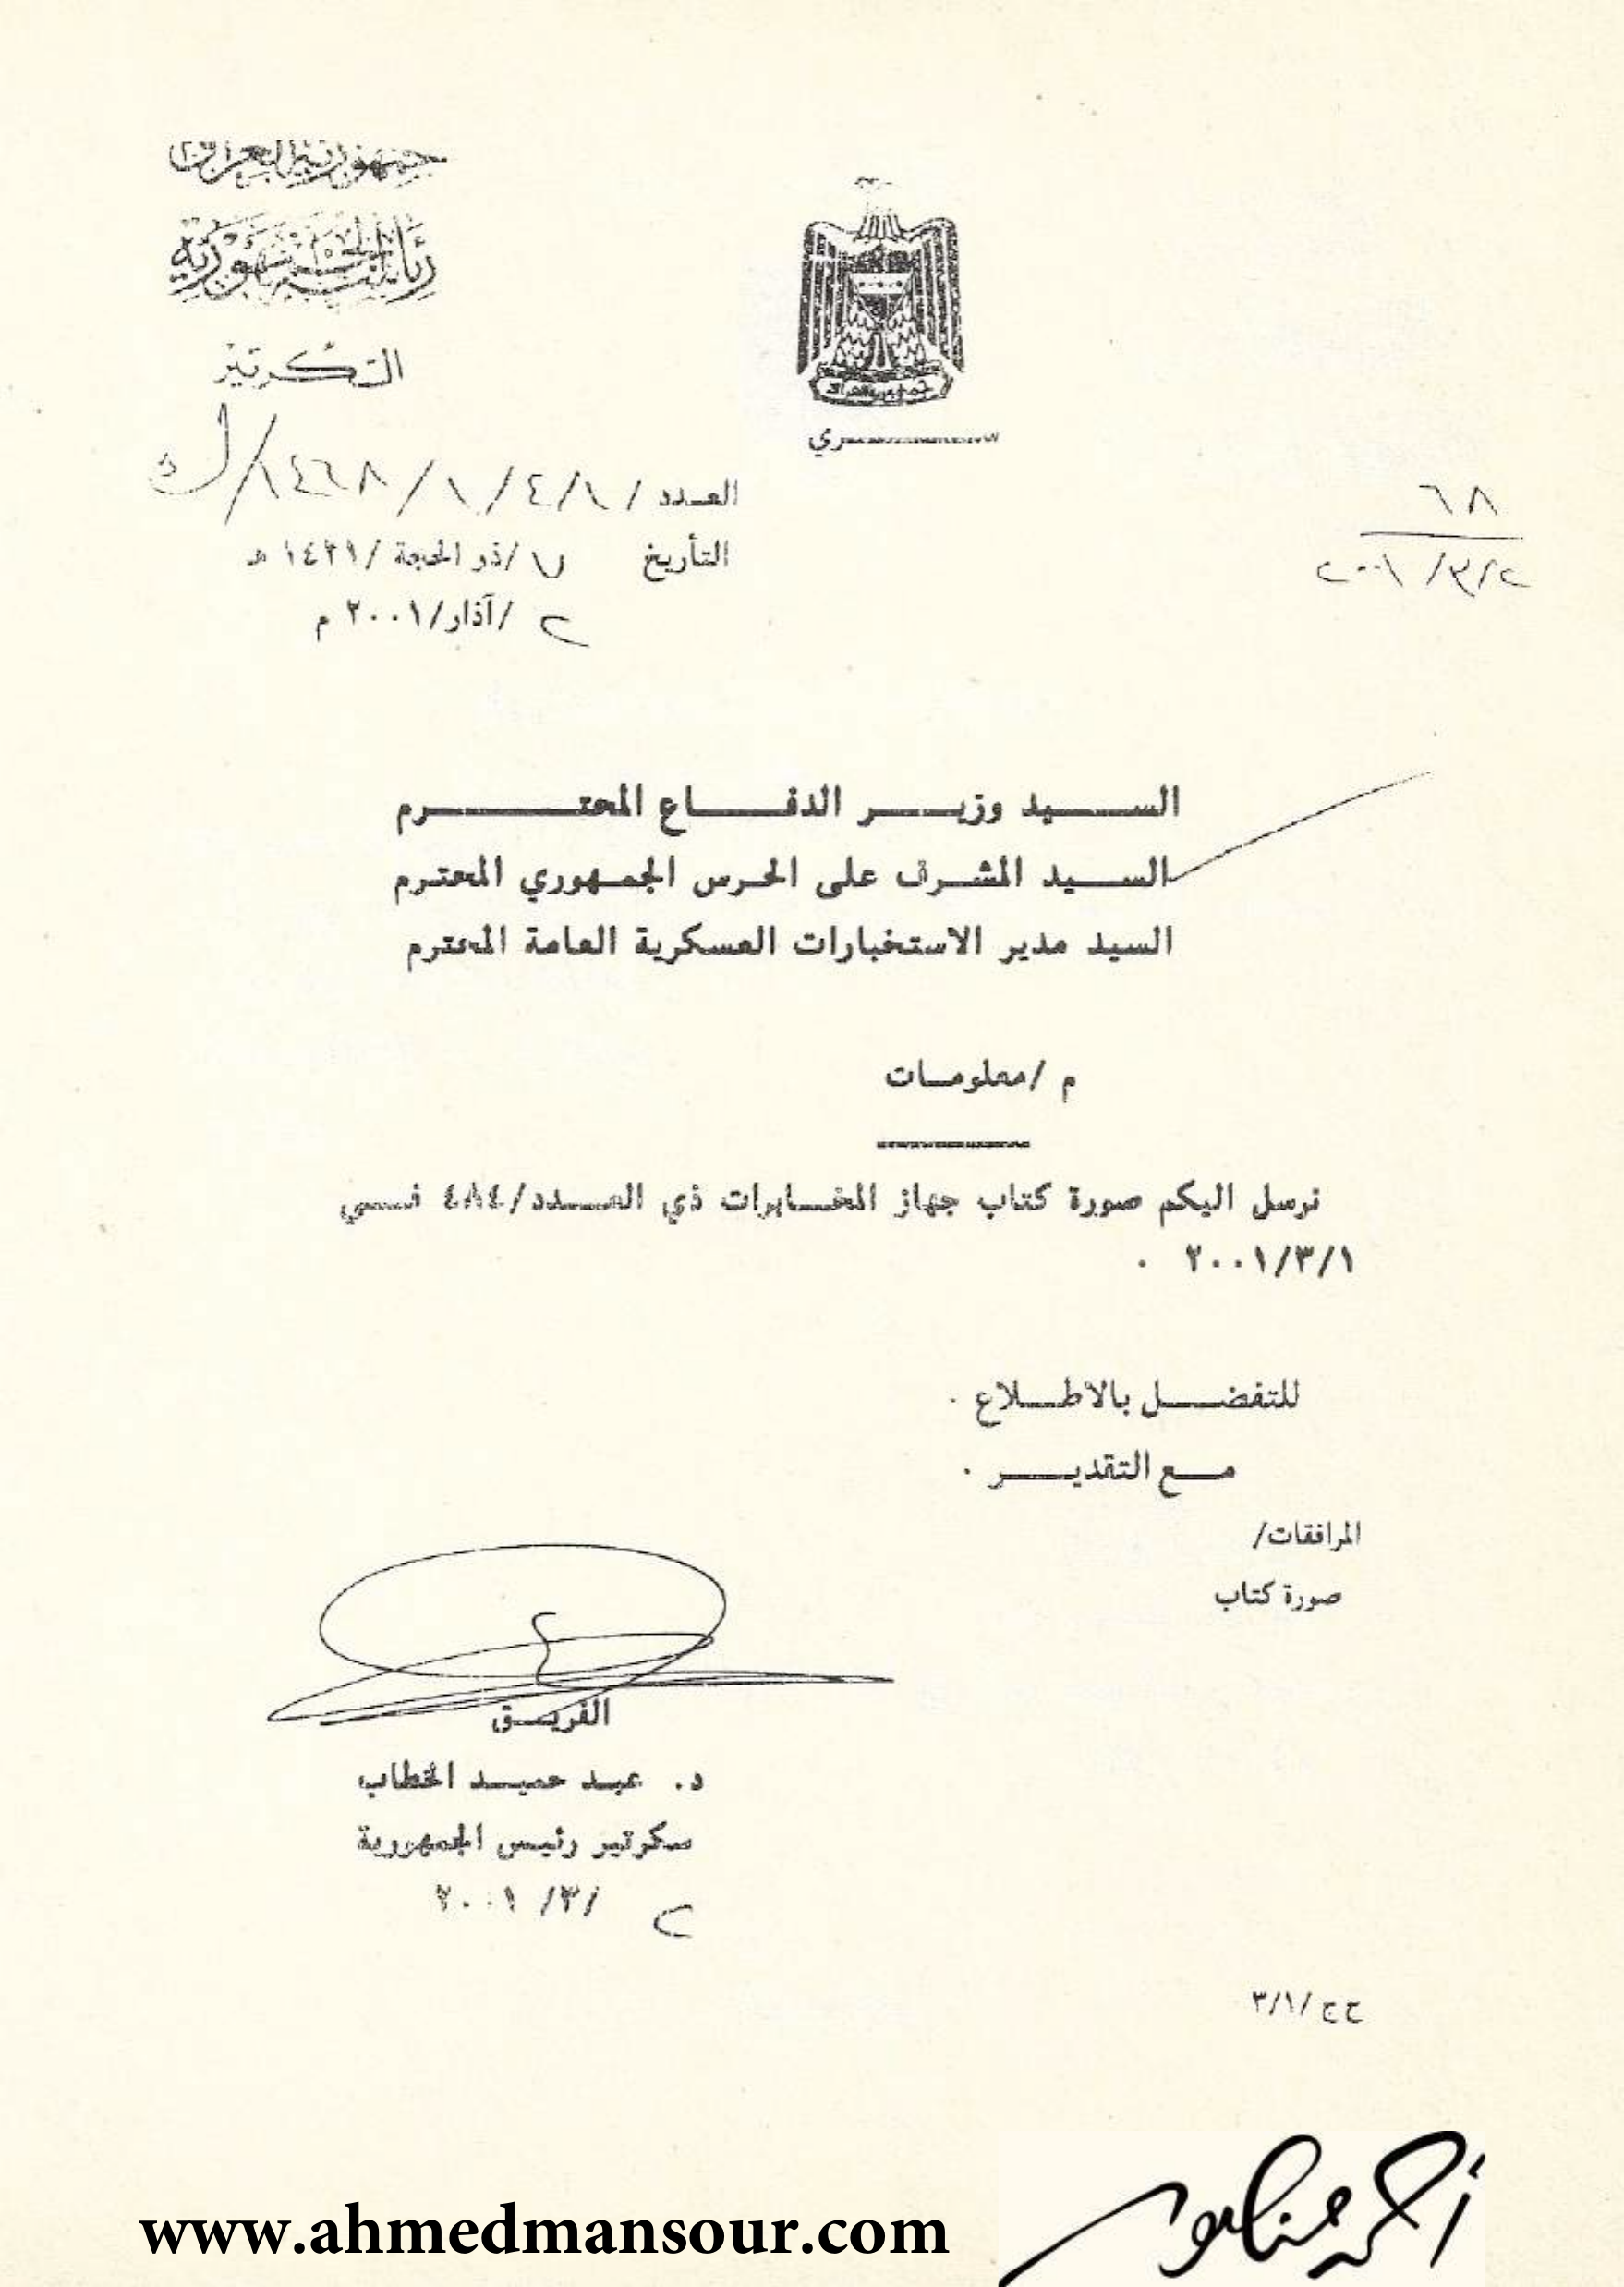 جمهورية العراق
رئاسة الجمهورية
السكرتير
سري
العدد / ١/٤/١/
التأريخ ٧ /ذو الحجة /١٤٢١ هـ
٢ /آذار/٢٠٠١ م
٦٨
٢٠٠١/٣/٢
السيد وزير الدفاع المحترم
السيد المشرف على الحرس الجمهوري المحترم
السيد مدير الاستخبارات العسكرية العامة المحترم
م /معلومات
نرسل اليكم صورة كتاب جهاز المخابرات ذي العدد/٤٨٤ في
٢٠٠١/٣/١ .
للتفضل بالاطلاع .
مع التقدير .
المرافقات/
صورة كتاب
الفريق
د. عبد حميد الخطاب
سكرتير رئيس الجمهورية
٢ /٣/ ٢٠٠١
ح ج /٣/١
www.ahmedmansour.com
أحمد منصور